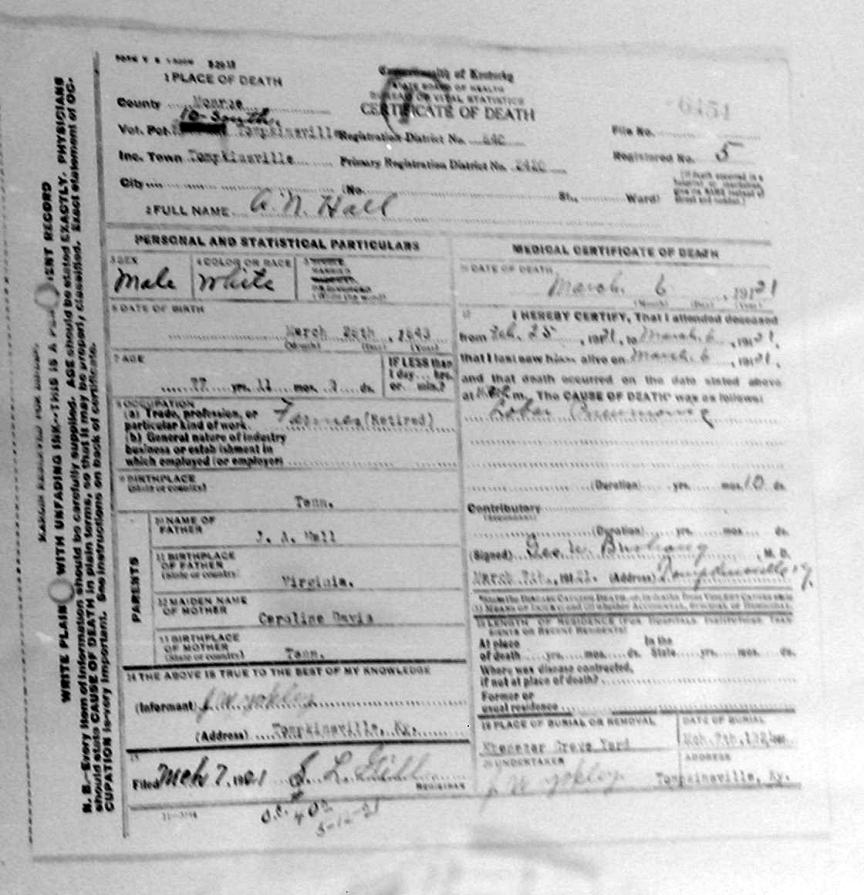 1 PLACE OF DEATH
Commonwealth of Kentucky
STATE BOARD OF HEALTH
BUREAU OF VITAL STATISTICS
CERTIFICATE OF DEATH
County Monroe
10-South
Vot. Pct. Tompkinsville Registration District No. 840
File No. 6451
Inc. Town Tompkinsville Primary Registration District No.
Registered No. 5
City (No. St., Ward)
2 FULL NAME A. N. Hall
PERSONAL AND STATISTICAL PARTICULARS
3 SEX
Male
4 COLOR OR RACE
White
6 DATE OF BIRTH
March 1843
(Month) (Day) (Year)
7 AGE
77 yrs. 11 mos. ds.
IF LESS than
1 day hrs.
or min.?
8 OCCUPATION
(a) Trade, profession, or
particular kind of work Farmer (Retired)
(b) General nature of industry
business or establishment in
which employed (or employer)
9 BIRTHPLACE
(State or country)
Tenn.
PARENTS
10 NAME OF
FATHER
J. A. Hall
11 BIRTHPLACE
OF FATHER
(State or country)
Virginia.
12 MAIDEN NAME
OF MOTHER
Caroline Davis
13 BIRTHPLACE
OF MOTHER
(State or country)
Tenn.
14 THE ABOVE IS TRUE TO THE BEST OF MY KNOWLEDGE
(Informant) J. W. Yokley
(Address) Tompkinsville, Ky.
15
Filed Mch 7, 1921
REGISTRAR
5-12-21
MEDICAL CERTIFICATE OF DEATH
16 DATE OF DEATH
March 6, 1921
(Month) (Day) (Year)
17 I HEREBY CERTIFY, That I attended deceased
from Feb. 25, 1921, to March 6, 1921,
that I last saw him alive on March 6, 1921,
and that death occurred on the date stated above
at m. The CAUSE OF DEATH was as follows:
Lobar Pneumonia
(Duration) yrs. mos. 10 ds.
Contributory
(Duration) yrs. mos. ds.
(Signed) Geo. W. Bushong, M. D.
March 7th, 1921. (Address) Tompkinsville Ky.
18 LENGTH OF RESIDENCE (FOR HOSPITALS, INSTITUTIONS, TRANSIENTS OR RECENT RESIDENTS)
At place In the
of death yrs. mos. ds. State yrs. mos. ds.
Where was disease contracted,
if not at place of death?
Former or
usual residence
19 PLACE OF BURIAL OR REMOVAL
Ebenezer Grave Yard
DATE OF BURIAL
Mch. 7th, 192
20 UNDERTAKER
J W Yokley
ADDRESS
Tompkinsville, Ky.
WRITE PLAINLY WITH UNFADING INK—THIS IS A PERMANENT RECORD
N. B.—Every item of information should be carefully supplied. AGE should be stated EXACTLY. PHYSICIANS
should state CAUSE OF DEATH in plain terms, so that it may be properly classified. Exact statement of OC-
CUPATION is very important. See instructions on back of certificate.